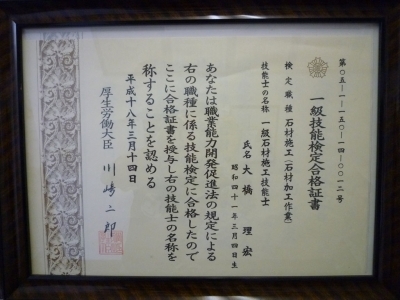 第〇五-一-一五〇-一四-〇〇一二号
一級技能検定合格証書
検定職種 石材施工(石材加工作業)
技能士の名称 一級石材施工技能士
氏名 大橋 理宏
昭和四十一年三月四日生
あなたは職業能力開発促進法の規定による
右の職種に係る技能検定に合格したので
ここに合格証書を授与し右の技能士の名称を
称することを認める
平成十八年三月十四日
厚生労働大臣 川崎二郎